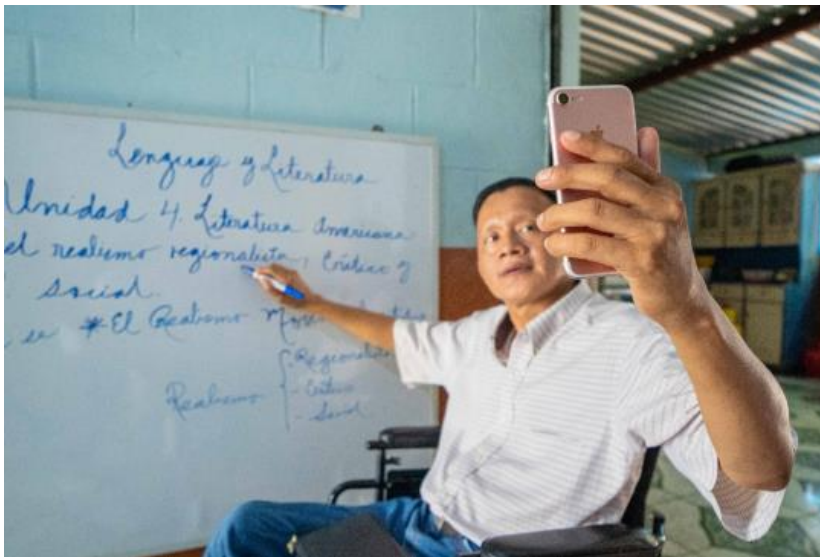 Lenguaje y Literatura
Unidad 4. Literatura Americana
el realismo regionalista, Crítico y
social.
*El Realismo
Regionalista
Realismo - Crítico
- Social